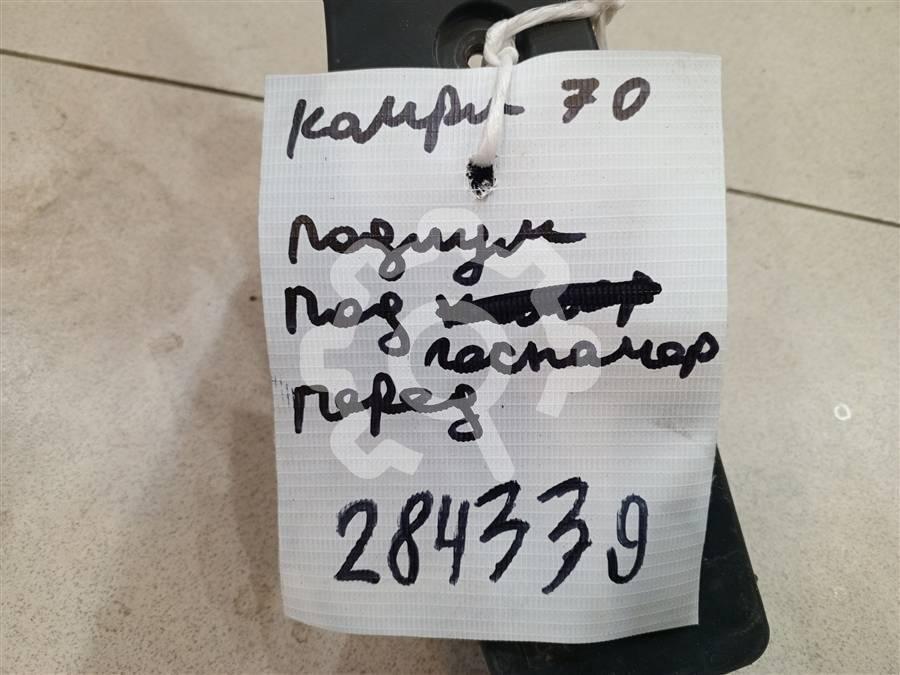 Камри 70
Подиум
Под
госномер
перед
284339